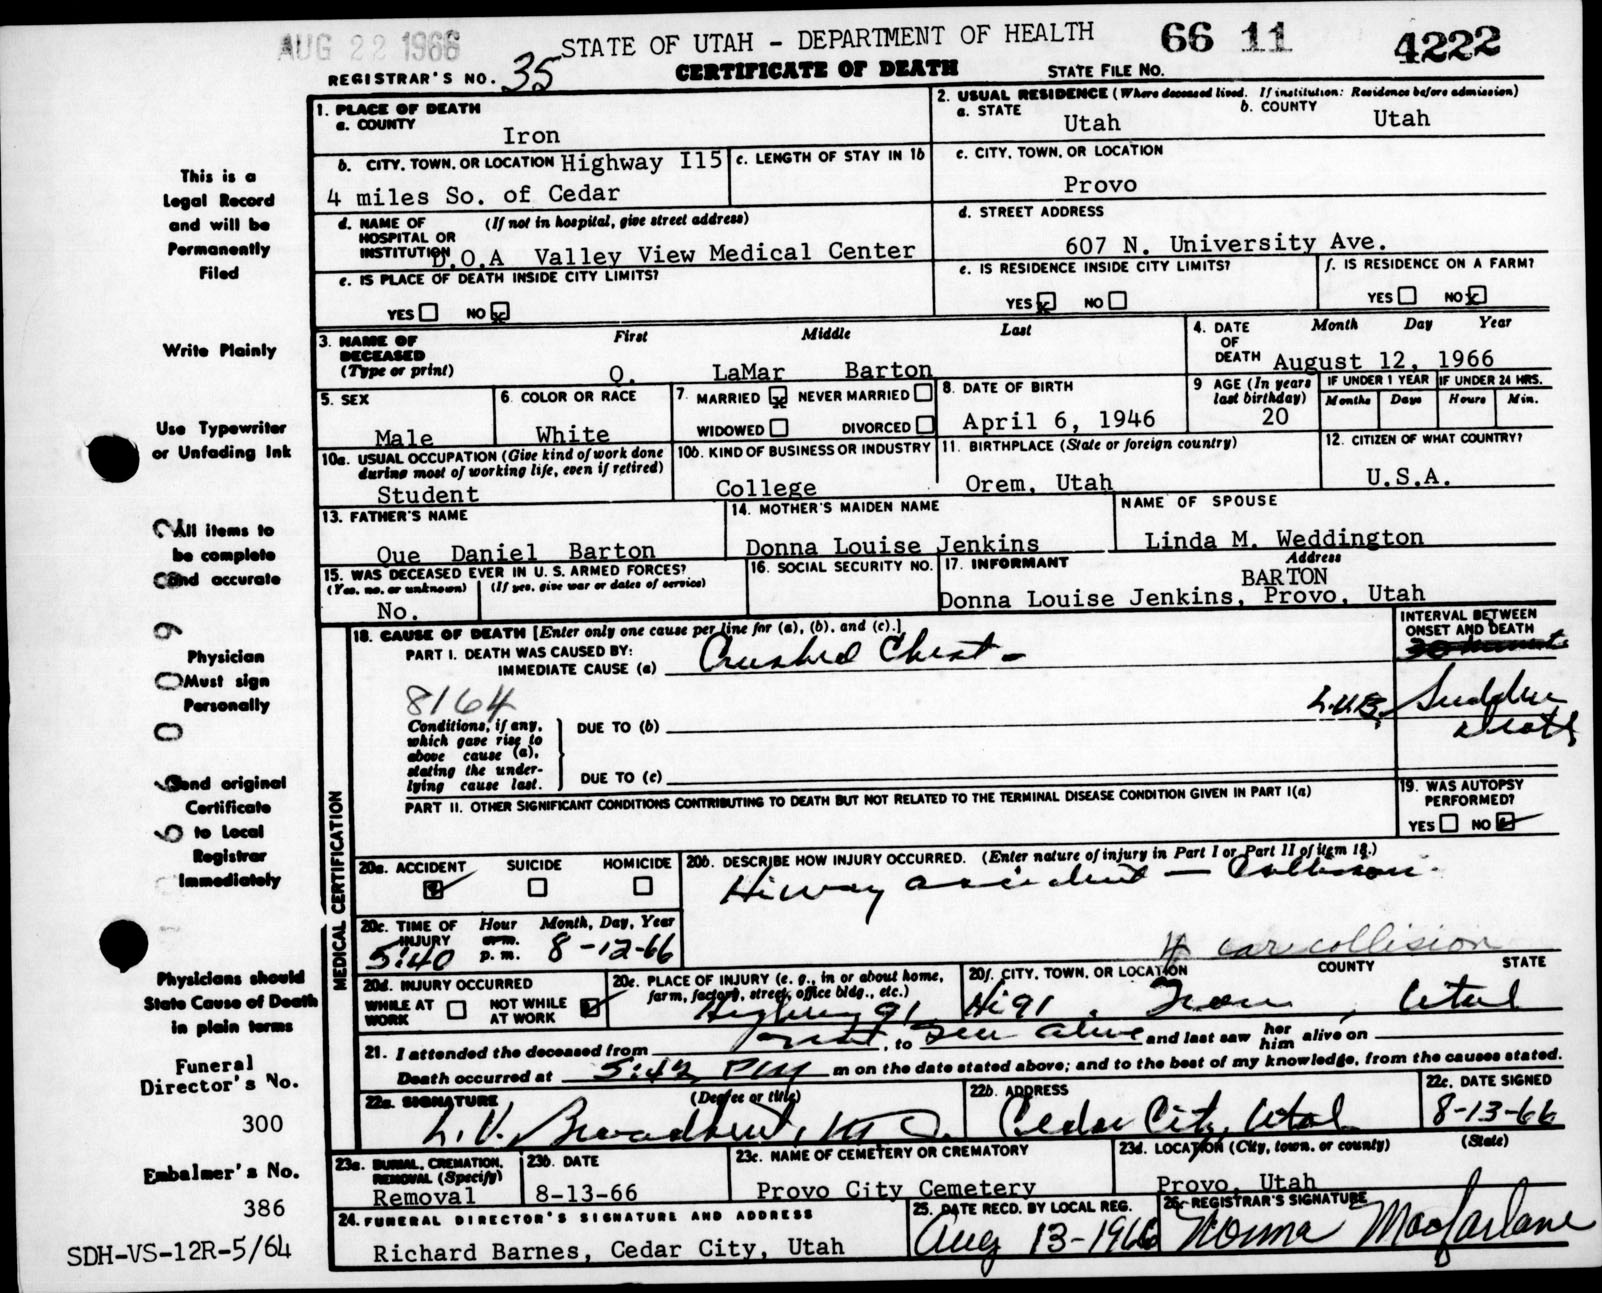 AUG 22 1966
STATE OF UTAH - DEPARTMENT OF HEALTH
66 11
4222
REGISTRAR'S NO. 35
CERTIFICATE OF DEATH
STATE FILE NO.
1. PLACE OF DEATH
a. COUNTY
Iron
2. USUAL RESIDENCE (Where deceased lived. If institution: Residence before admission)
a. STATE
Utah
b. COUNTY
Utah
b. CITY, TOWN, OR LOCATION Highway I15
4 miles So. of Cedar
c. LENGTH OF STAY IN 1b
c. CITY, TOWN, OR LOCATION
Provo
d. NAME OF HOSPITAL OR INSTITUTION
(If not in hospital, give street address)
D.O.A Valley View Medical Center
d. STREET ADDRESS
607 N. University Ave.
e. IS PLACE OF DEATH INSIDE CITY LIMITS?
YES NO x
e. IS RESIDENCE INSIDE CITY LIMITS?
YES x NO
f. IS RESIDENCE ON A FARM?
YES NO x
3. NAME OF DECEASED
(Type or print)
First Middle Last
O. LaMar Barton
4. DATE OF DEATH
Month Day Year
August 12, 1966
5. SEX
Male
6. COLOR OR RACE
White
7. MARRIED x NEVER MARRIED
WIDOWED DIVORCED
8. DATE OF BIRTH
April 6, 1946
9 AGE (In years last birthday)
20
IF UNDER 1 YEAR
Months Days
IF UNDER 24 HRS.
Hours Min.
10a. USUAL OCCUPATION (Give kind of work done during most of working life, even if retired)
Student
10b. KIND OF BUSINESS OR INDUSTRY
College
11. BIRTHPLACE (State or foreign country)
Orem, Utah
12. CITIZEN OF WHAT COUNTRY?
U.S.A.
13. FATHER'S NAME
Que Daniel Barton
14. MOTHER'S MAIDEN NAME
Donna Louise Jenkins
NAME OF SPOUSE
Linda M. Weddington
15. WAS DECEASED EVER IN U. S. ARMED FORCES?
(Yes, no, or unknown) (If yes, give war or dates of service)
No.
16. SOCIAL SECURITY NO.
17. INFORMANT
Address
BARTON
Donna Louise Jenkins, Provo, Utah
MEDICAL CERTIFICATION
18. CAUSE OF DEATH [Enter only one cause per line for (a), (b), and (c).]
PART I. DEATH WAS CAUSED BY:
IMMEDIATE CAUSE (a) Crushed Chest -
INTERVAL BETWEEN ONSET AND DEATH
L.V.B. Sudden
death
8164
Conditions, if any, which gave rise to above cause (a), stating the underlying cause last.
DUE TO (b)
DUE TO (c)
PART II. OTHER SIGNIFICANT CONDITIONS CONTRIBUTING TO DEATH BUT NOT RELATED TO THE TERMINAL DISEASE CONDITION GIVEN IN PART I(a)
19. WAS AUTOPSY PERFORMED?
YES NO
20a. ACCIDENT SUICIDE HOMICIDE
20b. DESCRIBE HOW INJURY OCCURRED. (Enter nature of injury in Part I or Part II of item 18.)
Hiway accident - Collision.
4 car collision
20c. TIME OF INJURY
Hour Month, Day, Year
a.m.
p.m.
5:40 8-12-66
20d. INJURY OCCURRED
WHILE AT WORK NOT WHILE AT WORK
20e. PLACE OF INJURY (e. g., in or about home, farm, factory, street, office bldg., etc.)
Highway 91
20f. CITY, TOWN, OR LOCATION COUNTY STATE
Hi 91. Iron, Utah
21. I attended the deceased from not, to seen alive and last saw her him alive on
Death occurred at 5:42 PM m on the date stated above; and to the best of my knowledge, from the causes stated.
22a. SIGNATURE (Degree or title)
L. V. Broadbent, M.D.
22b. ADDRESS
Cedar City, Utah
22c. DATE SIGNED
8-13-66
23a. BURIAL, CREMATION, REMOVAL (Specify)
Removal
23b. DATE
8-13-66
23c. NAME OF CEMETERY OR CREMATORY
Provo City Cemetery
23d. LOCATION (City, town, or county) (State)
Provo, Utah
24. FUNERAL DIRECTOR'S SIGNATURE AND ADDRESS
Richard Barnes, Cedar City, Utah
25. DATE RECD. BY LOCAL REG.
Aug 13-1966
26. REGISTRAR'S SIGNATURE
Norma Macfarlane
This is a
Legal Record
and will be
Permanently
Filed
Write Plainly
Use Typewriter
or Unfading Ink
All items to
be complete
and accurate
Physician
Must sign
Personally
Send original
Certificate
to Local
Registrar
Immediately
Physicians should
State Cause of Death
in plain terms
Funeral
Director's No.
300
Embalmer's No.
386
SDH-VS-12R-5/64